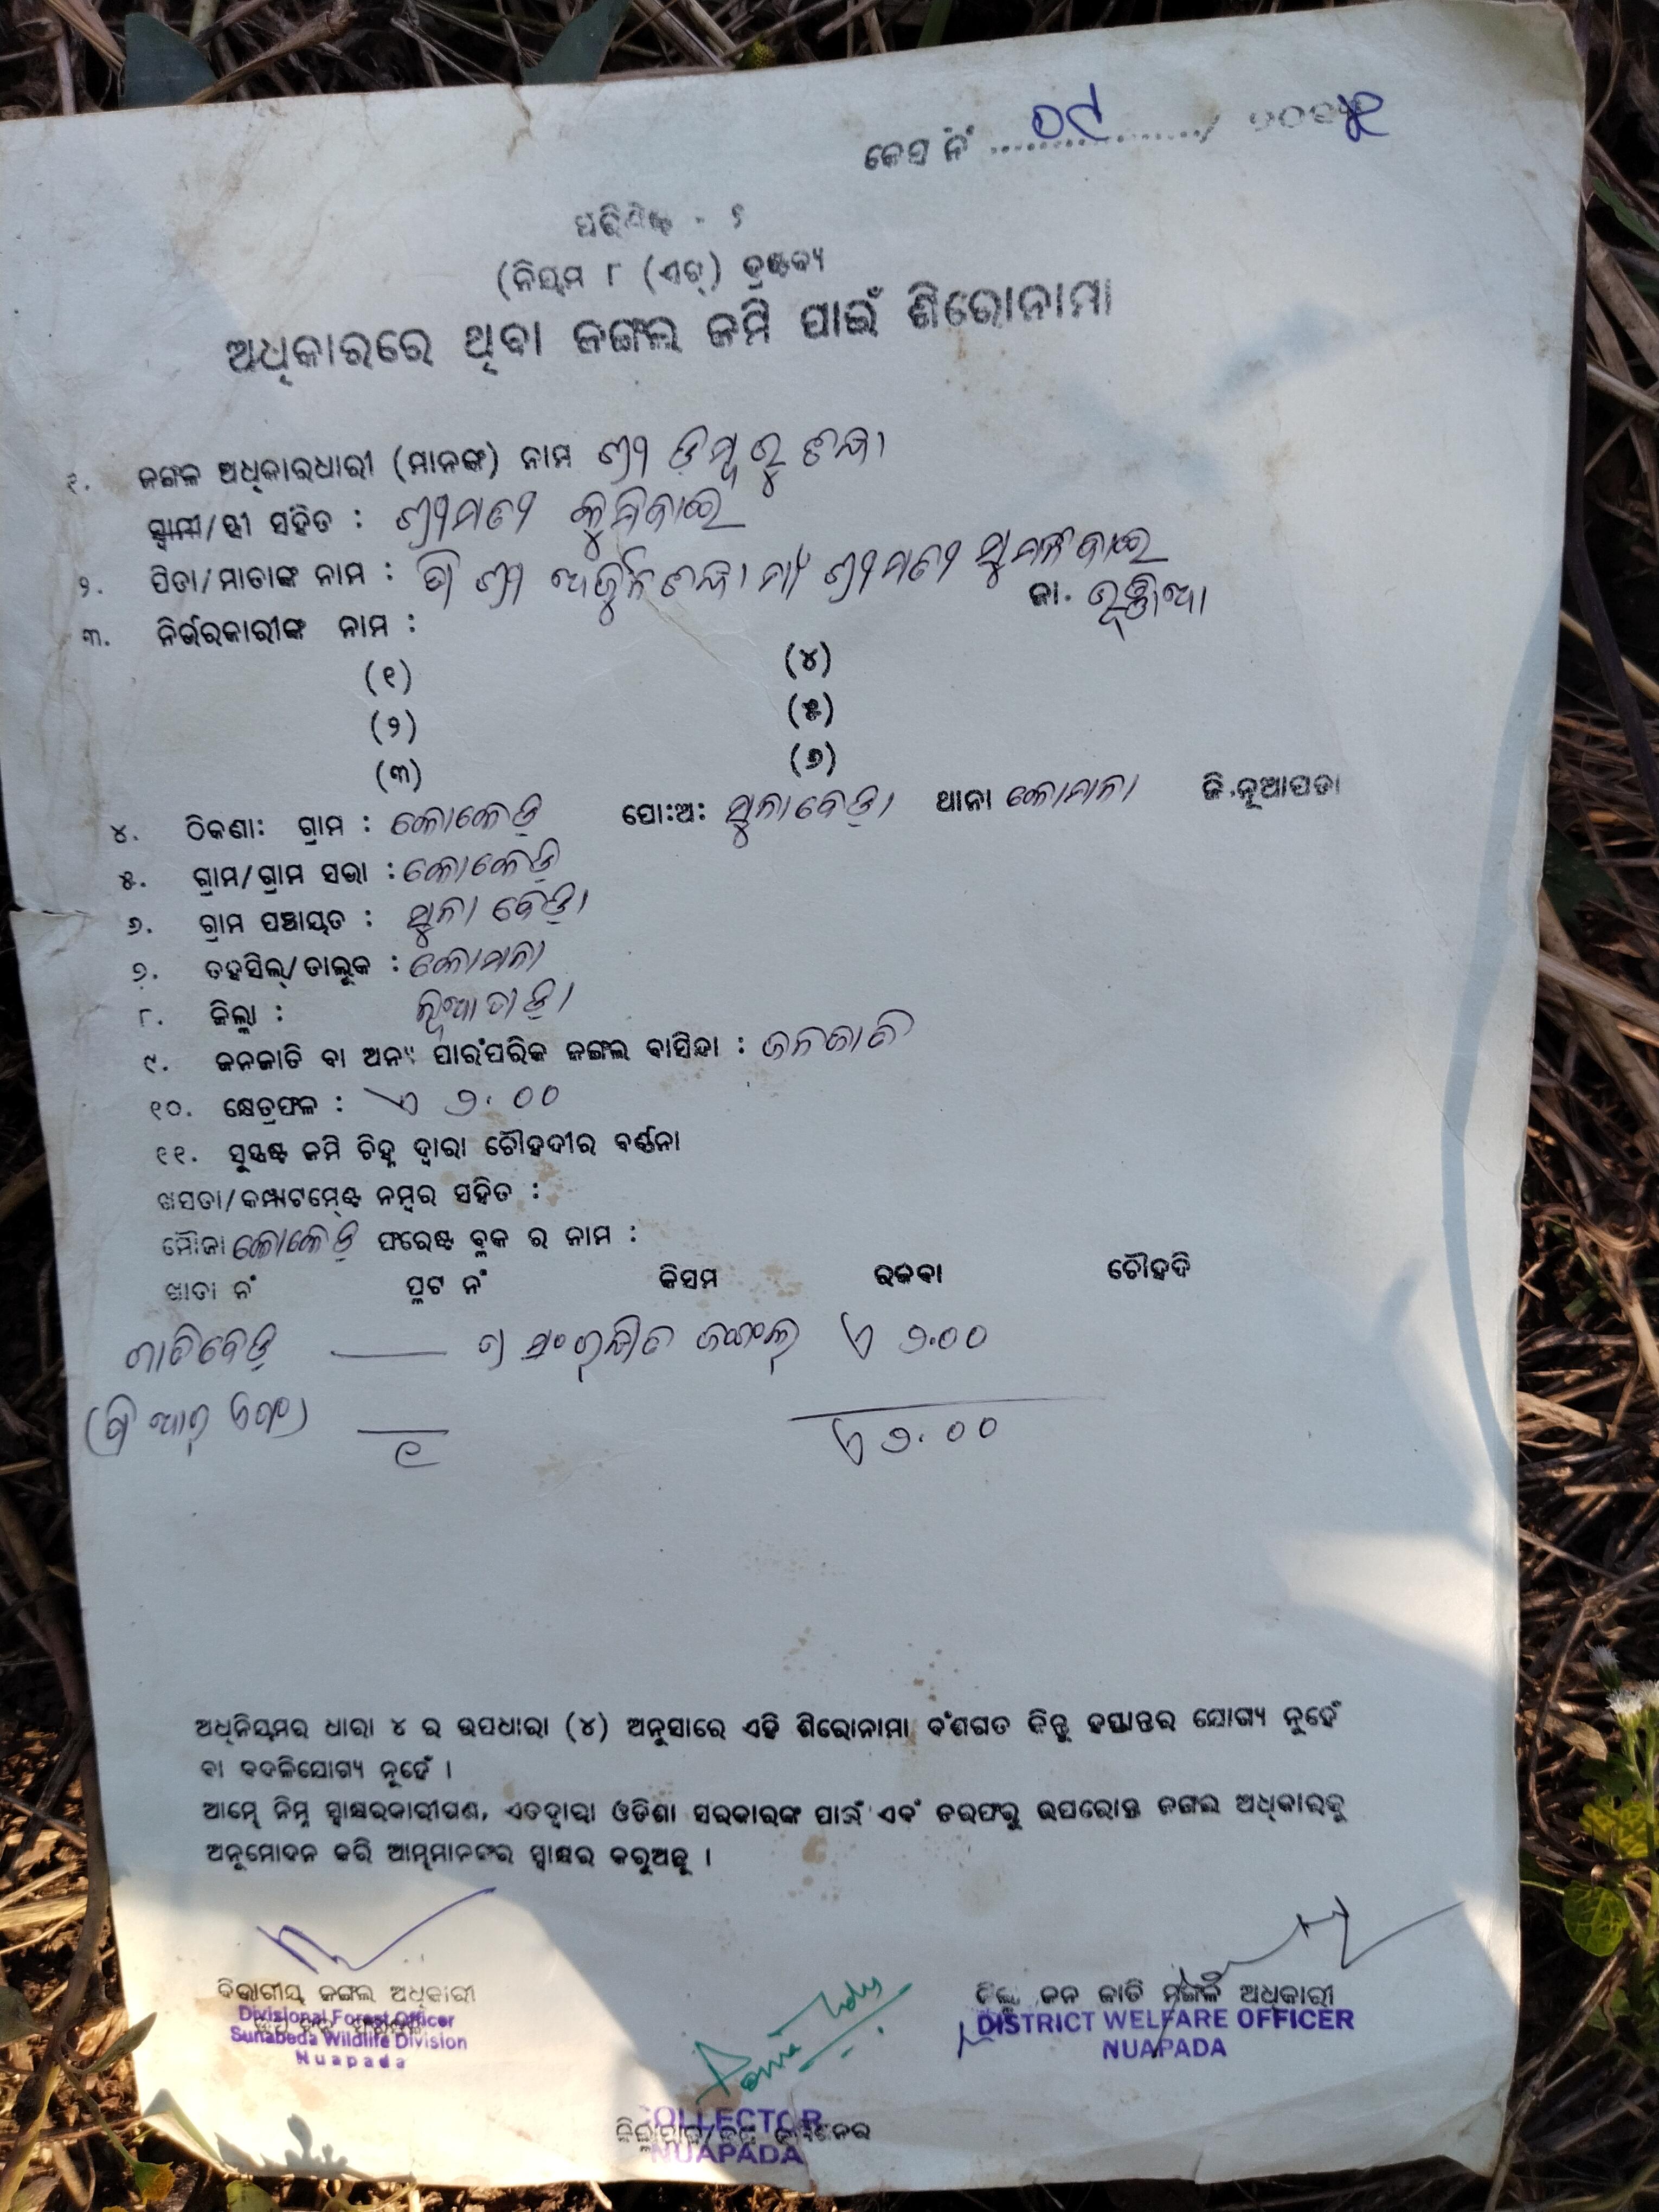 କେସ ନଂ ୦୯ /
ପରିଶିଷ୍ଟ - ୧
(ନିୟମ ୮ (ଏଚ୍) ଦ୍ରଷ୍ଟବ୍ୟ
ଅଧିକାରରେ ଥିବା ଜଙ୍ଗଲ ଜମି ପାଇଁ ଶିରୋନାମା
୧. ଜଙ୍ଗଳ ଅଧିକାରଧାରୀ (ମାନଙ୍କ) ନାମ ଶ୍ରୀ ଡମ୍ବରୁ
ସ୍ୱାମୀ/ସ୍ତ୍ରୀ ସହିତ : ଶ୍ରୀମତୀ
୨. ପିତା/ମାତାଙ୍କ ନାମ : ପି ଶ୍ରୀ ଅର୍ଜୁନ ମା ଶ୍ରୀମତୀ
ଜା.
୩. ନିର୍ଭରକାରୀଙ୍କ ନାମ :
(୧) (୪)
(୨) (୫)
(୩) (୬)
୪. ଠିକଣା: ଗ୍ରାମ : କୋକେଡ଼ି ପୋ:ଅ: ସୁନାବେଡ଼ା ଥାନା କୋମନା ଜି.ନୂଆପଡା
୫. ଗ୍ରାମ/ଗ୍ରାମ ସଭା : କୋକେଡ଼ି
୬. ଗ୍ରାମ ପଞ୍ଚାୟତ : ସୁନାବେଡ଼ା
୭. ତହସିଲ୍/ତାଲୁକ : କୋମନା
୮. ଜିଲ୍ଲା : ନୂଆପଡ଼ା
୯. ଜନଜାତି ବା ଅନ୍ୟ ପାରଂପରିକ ଜଙ୍ଗଲ ବାସିନ୍ଦା : ଜନଜାତି
୧୦. କ୍ଷେତ୍ରଫଳ : ଏ ୭.୦୦
୧୧. ସୁସ୍ପଷ୍ଟ ଜମି ଚିହ୍ନ ଦ୍ୱାରା ଚୌହଦୀର ବର୍ଣ୍ଣନା
ଖସଡା/କମ୍ପାଟମେଣ୍ଟ ନମ୍ବର ସହିତ :
ମୌଜା କୋକେଡ଼ି ଫରେଷ୍ଟ ବ୍ଲକ ର ନାମ :
ଖାତା ନଂ ପ୍ଲଟ ନଂ କିସମ ରକବା ଚୌହଦି
ସଂରକ୍ଷିତ ଜଙ୍ଗଲ ଏ ୭.୦୦
୧ ଏ ୭.୦୦
ଅଧିନିୟମର ଧାରା ୪ ର ଉପଧାରା (୪) ଅନୁସାରେ ଏହି ଶିରୋନାମା ବଂଶଗତ କିନ୍ତୁ ହସ୍ତାନ୍ତର ଯୋଗ୍ୟ ନୁହେଁ
ବା ବଦଳିଯୋଗ୍ୟ ନୁହେଁ ।
ଆମ୍ଭେ ନିମ୍ନ ସ୍ୱାକ୍ଷରକାରୀଗଣ, ଏତଦ୍ୱାରା ଓଡିଶା ସରକାରଙ୍କ ପାଇଁ ଏବଂ ତରଫରୁ ଉପରୋକ୍ତ ଜଙ୍ଗଲ ଅଧିକାରକୁ
ଅନୁମୋଦନ କରି ଆମ୍ଭମାନଙ୍କର ସ୍ୱାକ୍ଷର କରୁଅଛୁ ।
ବିଭାଗୀୟ ଜଙ୍ଗଲ ଅଧିକାରୀ
Divisional Forest Officer
Sunabeda Wildlife Division
Nuapada
ଜିଲ୍ଲା ଜନ ଜାତି ମଙ୍ଗଳ ଅଧିକାରୀ
DISTRICT WELFARE OFFICER
NUAPADA
COLLECTOR
NUAPADA